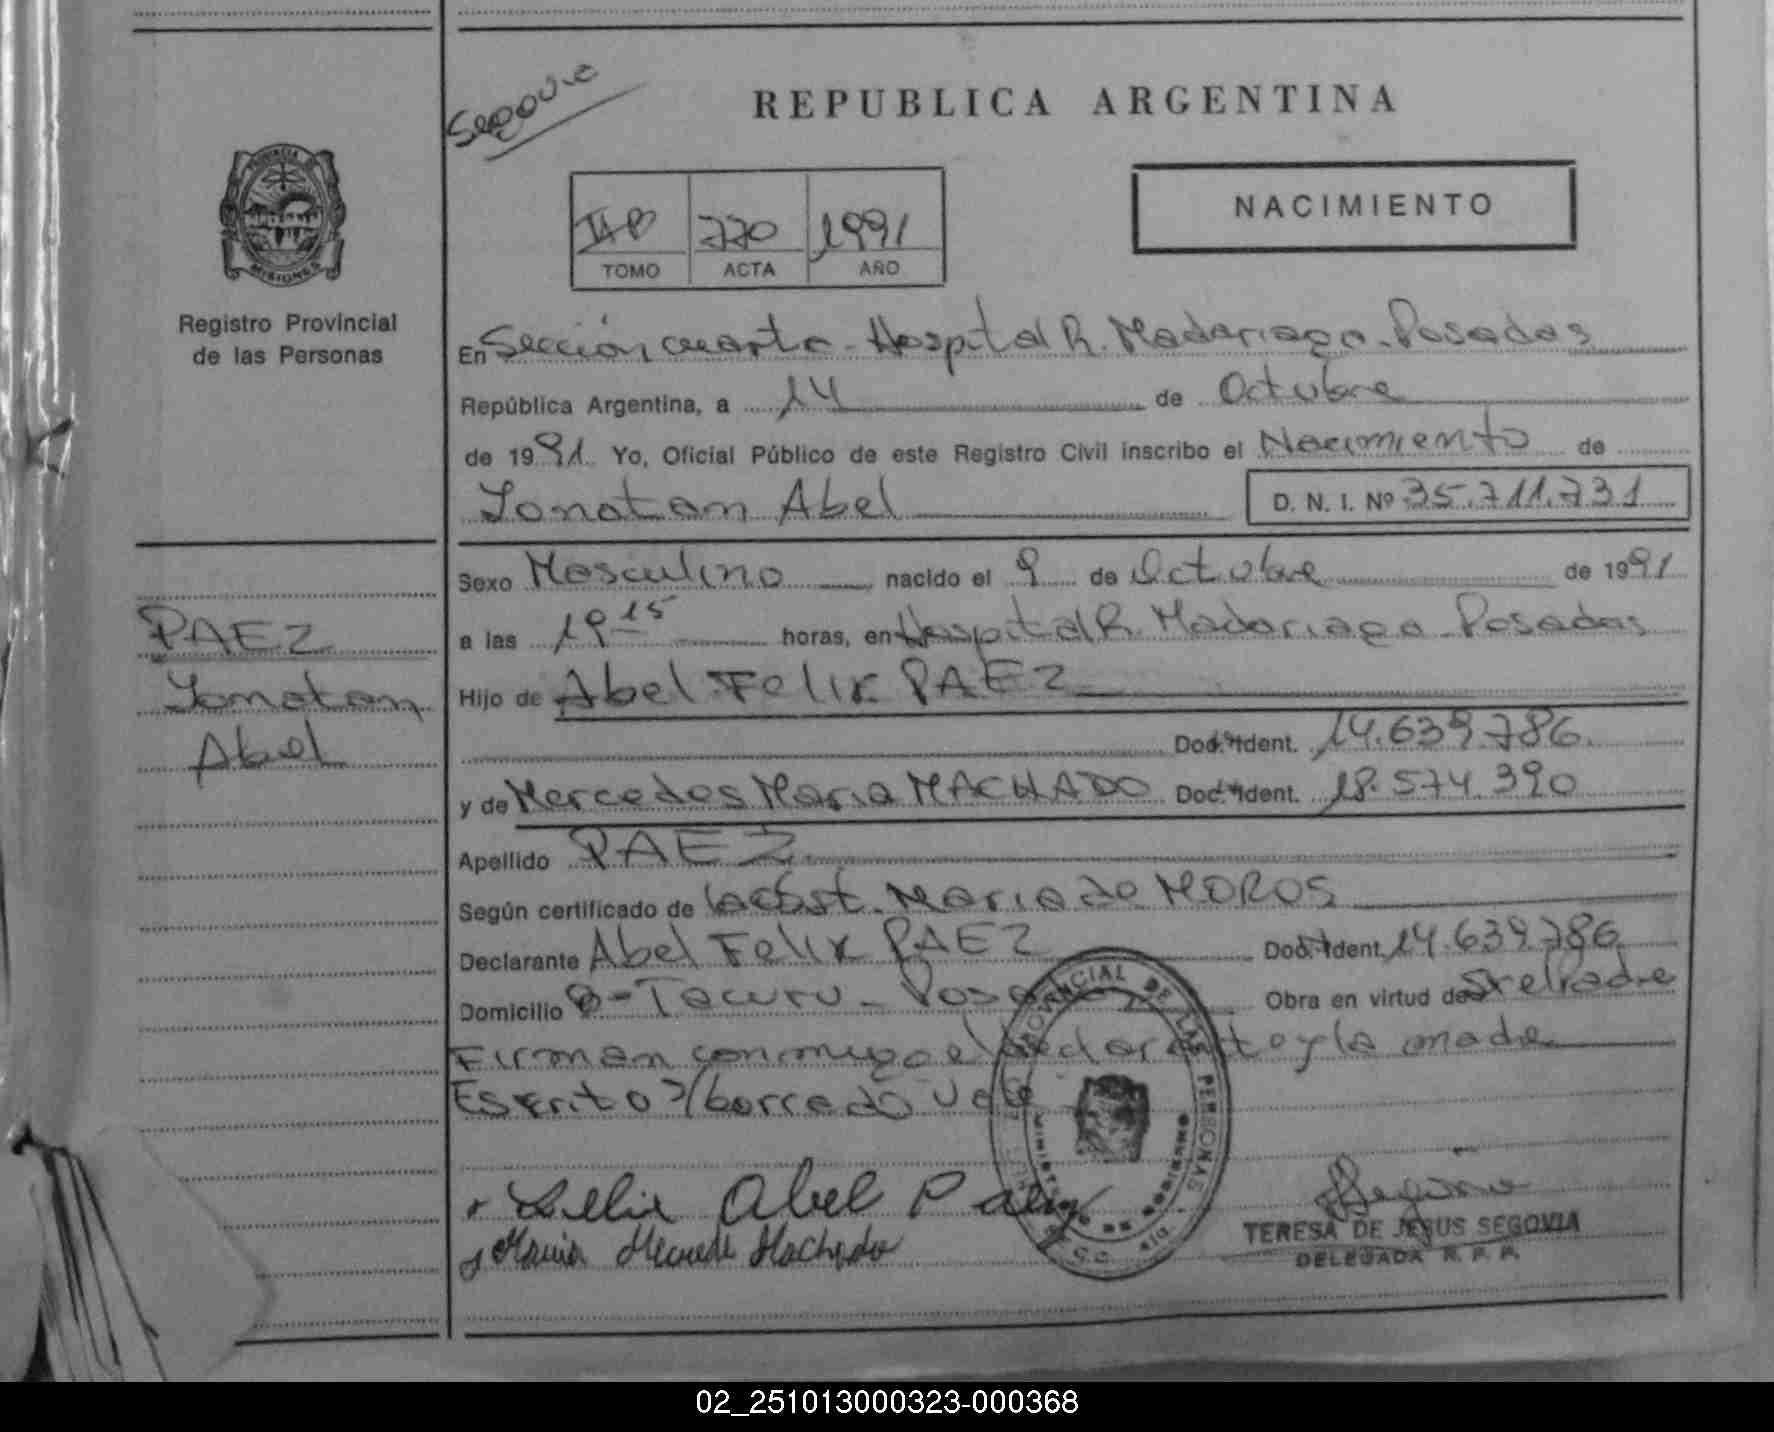 Segovia
REPUBLICA ARGENTINA
PROVINCIA DE
MISIONES
Registro Provincial
de las Personas
770 1991
TOMO ACTA AÑO
NACIMIENTO
En Sección cuarta - Hospital R. Madariaga - Posadas
República Argentina, a 14 de Octubre
de 1991 Yo, Oficial Público de este Registro Civil inscribo el Nacimiento de
Yonatan Abel D. N. I. Nº 35.711.731
Sexo Masculino nacido el 9 de Octubre de 1991
a las 19 15 horas, en Hospital R. Madariaga - Posadas
Hijo de Abel Felix PAEZ
Doc. Ident. 14.639.786
y de Mercedes Maria MACHADO Doc. Ident. 18.574.390
Apellido PAEZ
Según certificado de la Obst. Maria de MOROS
Declarante Abel Felix PAEZ Doc. Ident. 14.639.786
Domicilio Tacuru - Posadas Obra en virtud de Padre
Firman conmigo el declarante y la madre
Escrito s/borrado Vale
PAEZ
Yonatan
Abel
Felix Abel Paez
Maria Mercedes Machado
PROVINCIAL DE LAS PERSONAS
MINISTERIO DE GOBIERNO
TERESA DE JESUS SEGOVIA
DELEGADA R. P. P.
02_251013000323-000368